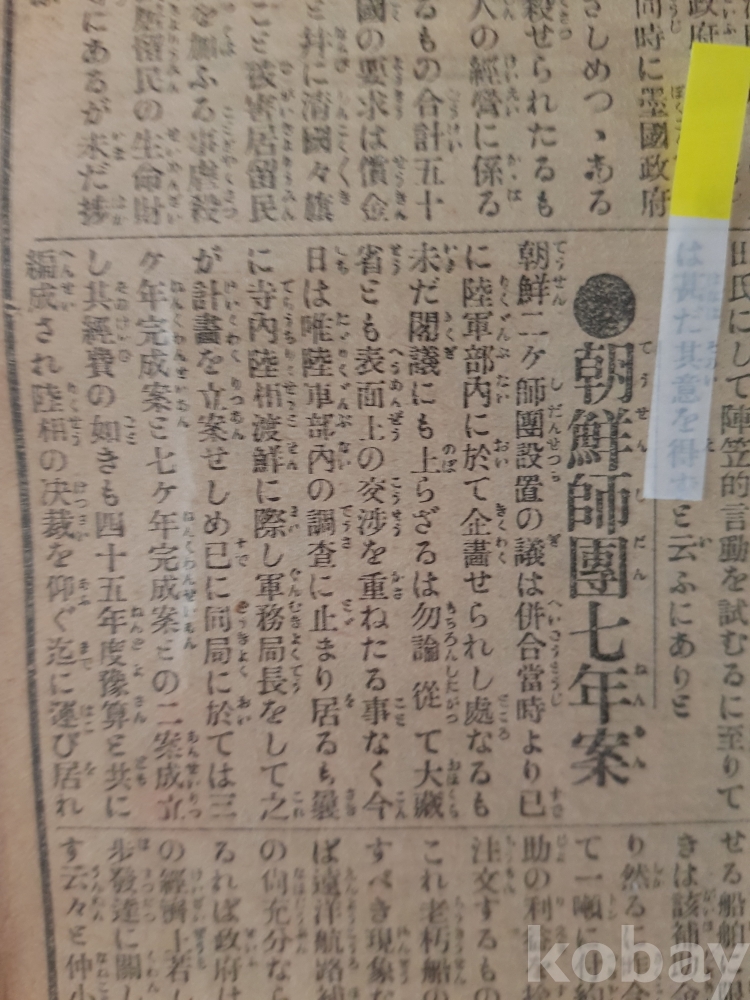 政府
同時に墨國政府
さしめつゝある
殺せられたるも
人の經營に係る
るもの合計五十
國の要求は償金
と幷に淸國々旗
こと被害居留民
を加ふる事虐殺
居留民の生命財
にあるが未だ捗
田氏にして陣笠的言動を試むるに至りて
は甚だ其意を得ずと云ふにありと
●朝鮮師團七年案
朝鮮二ケ師團設置の議は併合當時より已
に陸軍部内に於て企畫せられし處なるも
未だ閣議にも上らざるは勿論從て大藏
省とも表面上の交渉を重ねたる事なく今
日は唯陸軍部内の調査に止まり居るも曩
に寺内陸相渡鮮に際し軍務局長をして之
が計畫を立案せしめ已に同局に於ては三
ケ年完成案と七ケ年完成案との二案成立
し其經費の如きも四十五年度豫算と共に
編成され陸相の决裁を仰ぐ迄に運び居れ
せる船舶と限
きは該補助金
り然るに今
て一噸に付
助の利
注文するもの
これ老朽船の
すべき現象な
ば遠洋航路補
の尙充分なら
るれば政府は
の經濟上若し
步發達に關し
す云々と仲小
kobay